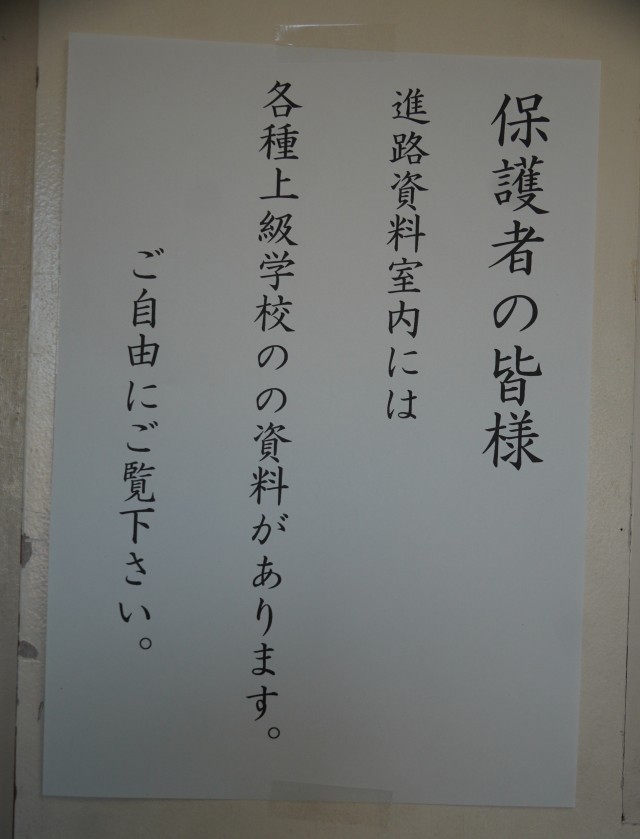 保護者の皆様
進路資料室内には
各種上級学校のの資料があります。
ご自由にご覧下さい。